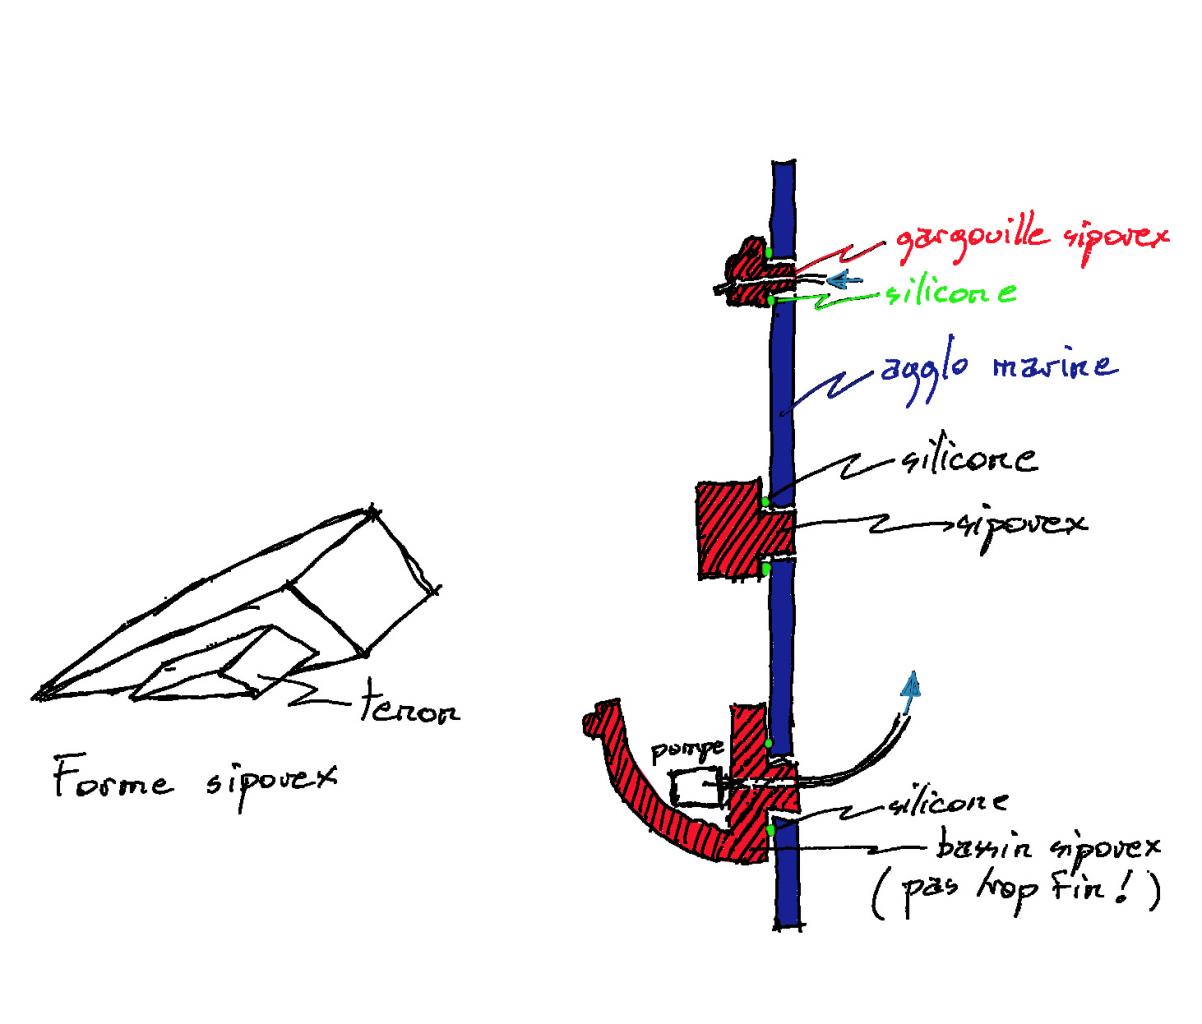 gargouille siporex
silicone
agglo marine
silicone
siporex
tenon
Forme siporex
pompe
silicone
bassin siporex
(pas trop fin!)